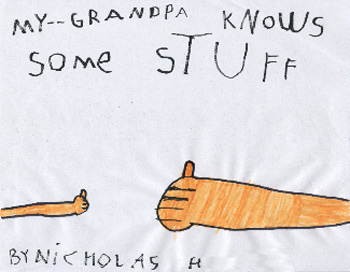 MY--GRANDPA KNOWS
SOme STUFF
BY NiCHOLAS H